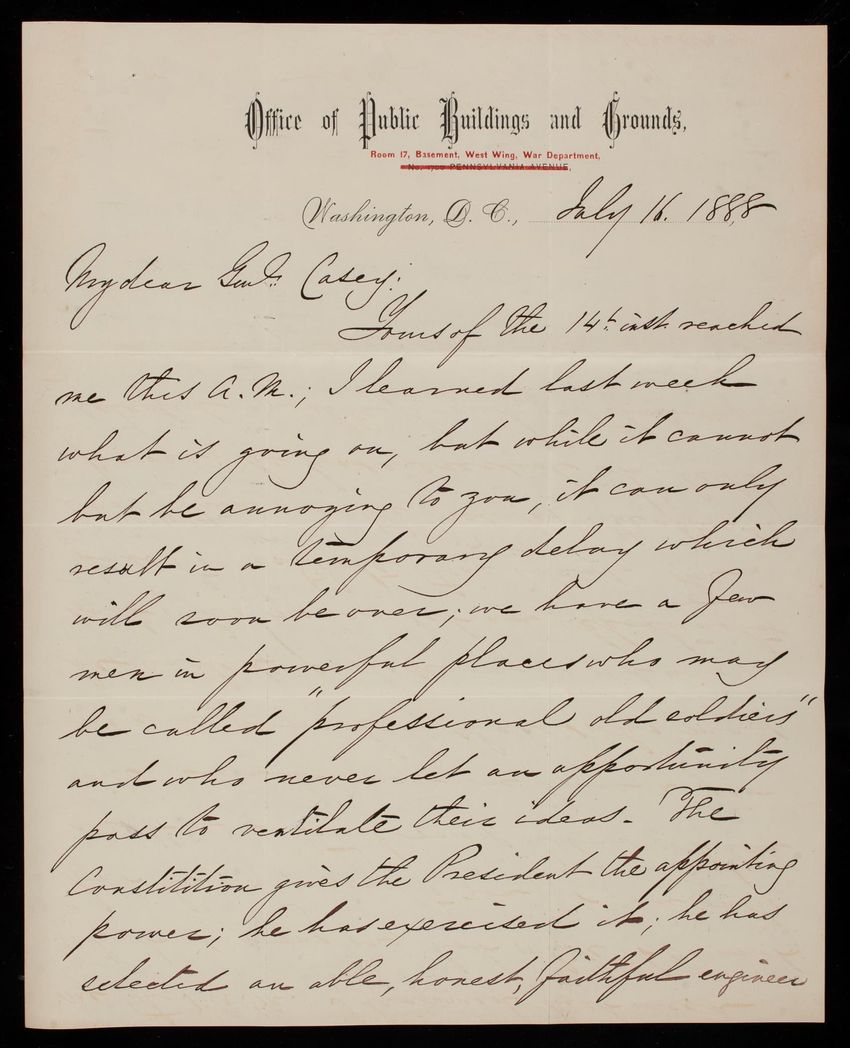 Office of Public Buildings and Grounds,
Room 17, Basement, West Wing, War Department,
No. 1700 PENNSYLVANIA AVENUE,
Washington, D. C., July 16. 1888
My dear Genl. Casey:
Yours of the 14th inst. reached
me this A.M.; I learned last week
what is going on, but while it cannot
but be annoying to you, it can only
result in a temporary delay which
will soon be over; we have a few
men in powerful places who may
be called "professional old soldiers"
and who never let an opportunity
pass to ventilate their ideas. The
Constitition gives the President the appointing
power; he has exercised it; he has
selected an able, honest, faithful engineer